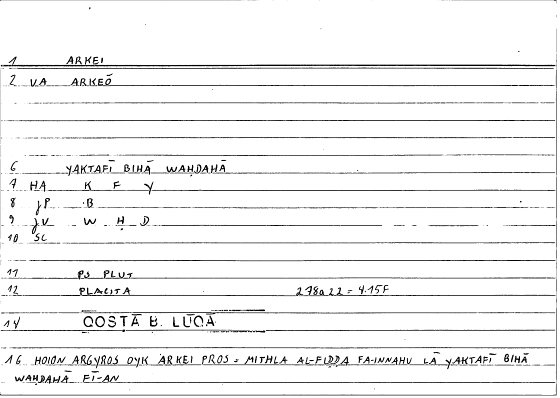 1 ARKEI
2 V.A ARKEŌ
6 YAKTAFĪ BIHĀ WAḤDAHĀ
7 HA K F Y
8 JP B
9 JV W Ḥ D
10 SC
11 PS PLUT
12 PLACITA 278a22 = 4.15F
14 QOSṬĀ B. LŪQĀ
16 HOION ARGYROS OYK ARKEI PROS = MITHLA AL-FIḌḌA FA-INNAHU LĀ YAKTAFĪ BIHĀ
WAḤDAHĀ FĪ-AN